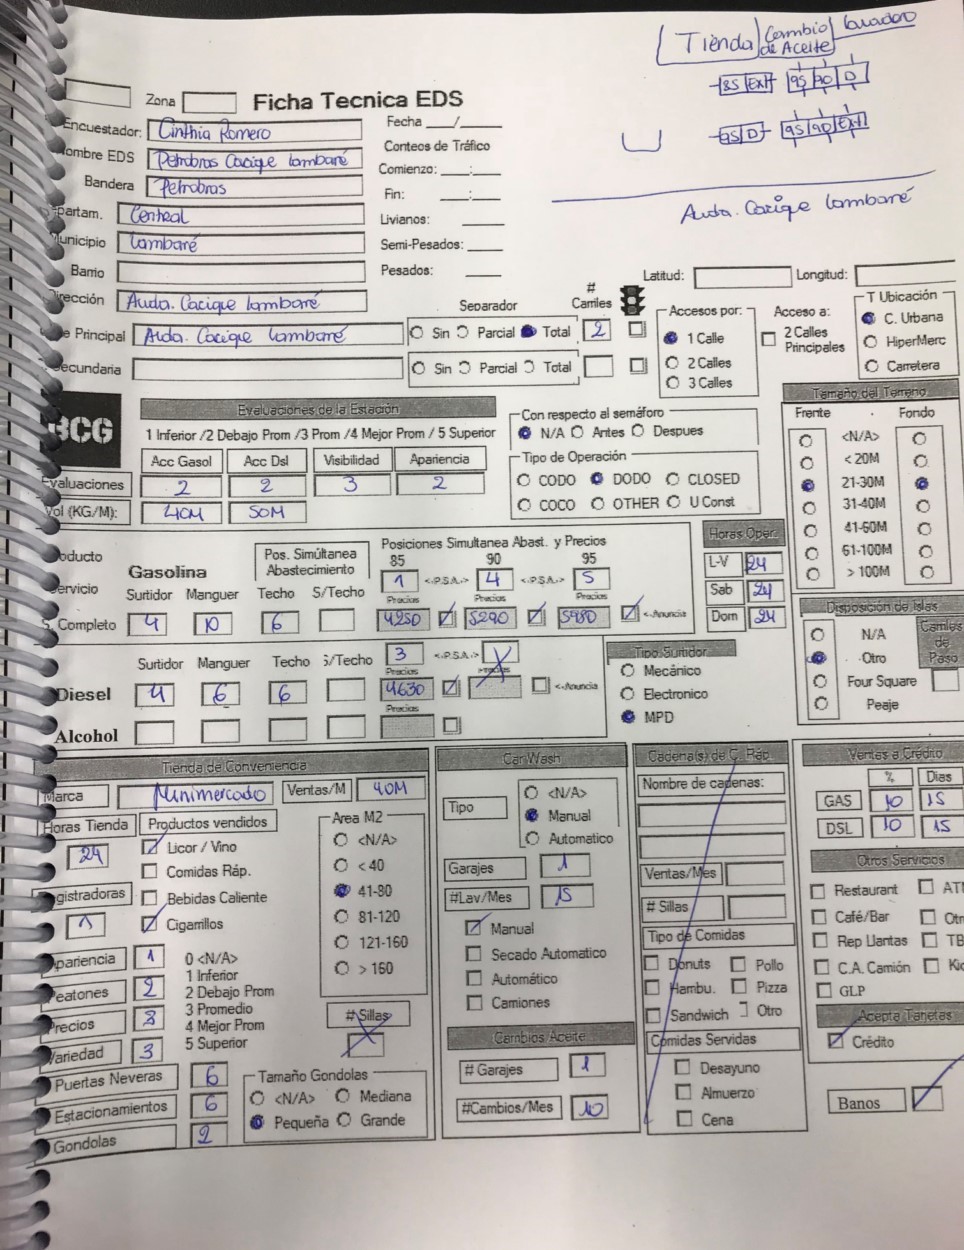 Tienda Cambio de Aceite lavadero
85 EXT 95 90 D
95 D 95 90 EXT
Avda. Cacique lambaré
Zona
Ficha Tecnica EDS
Encuestador: Cinthia Romero
Fecha ___/___
Nombre EDS Petrobras Cacique lambaré
Conteos de Tráfico
Bandera Petrobras
Comienzo: ___:___
Departam. Central
Fin: ___:___
Municipio lambaré
Livianos:
Semi-Pesados:
Barrio
Pesados:
Latitud: Longitud:
Dirección Avda. Cacique lambaré
Separador # Carriles
Principal Avda. Cacique lambaré
Sin Parcial Total 2
Secundaria
Sin Parcial Total
Accesos por:
1 Calle
2 Calles
3 Calles
Acceso a:
2 Calles Principales
T Ubicación
C. Urbana
HiperMerc
Carretera
BCG
Evaluaciones de la Estación
1 Inferior /2 Debajo Prom /3 Prom /4 Mejor Prom / 5 Superior
Acc Gasol Acc Dsl Visibilidad Apariencia
Evaluaciones 2 2 3 2
Vol (KG/M): 40M 50M
Con respecto al semáforo
N/A Antes Despues
Tipo de Operación
CODO DODO CLOSED
COCO OTHER U Const
Tamaño del Terreno
Frente Fondo
<N/A>
< 20M
21-30M
31-40M
41-60M
61-100M
> 100M
Producto
Servicio
Gasolina
Pos. Simúltanea Abastecimiento
Posiciones Simultanea Abast. y Precios
85 90 95
1 <-P.S.A.-> 4 <-P.S.A.-> 5
Surtidor Manguer Techo S/Techo
Precios Precios Precios
S. Completo 4 10 6 4250 5290 5980 <-Anuncia
Horas Oper.
L-V 24
Sab 24
Dom 24
Disposición de Islas
N/A
Otro
Four Square
Peaje
Carriles de Paso
Surtidor Manguer Techo S/Techo 3 <-P.S.A.-> X
Precios Precios
Diesel 4 6 6 4630 <-Anuncia
Precios
Alcohol
Tipo Surtidor
Mecánico
Electronico
MPD
Tienda de Conveniencia
Marca Minimercado Ventas/M 40M
Horas Tienda Productos vendidos
24
Licor / Vino
Comidas Ráp.
Registradoras
Bebidas Caliente
1 Cigarrillos
Area M2
<N/A>
< 40
41-80
81-120
121-160
> 160
Apariencia 1
Peatones 2
Precios 3
Variedad 3
0 <N/A>
1 Inferior
2 Debajo Prom
3 Promedio
4 Mejor Prom
5 Superior
# Sillas
Puertas Neveras 6
Estacionamientos 6
Gondolas 2
Tamaño Gondolas
<N/A> Mediana
Pequeña Grande
Car Wash
Tipo
<N/A>
Manual
Automatico
Garajes 1
#Lav/Mes 15
Manual
Secado Automatico
Automático
Camiones
Cambios Aceite
# Garajes 1
#Cambios/Mes 10
Cadena(s) de C. Ráp.
Nombre de cadenas:
Ventas/Mes
# Sillas
Tipo de Comidas
Donuts Pollo
Hambu. Pizza
Sandwich Otro
Comidas Servidas
Desayuno
Almuerzo
Cena
Ventas a Crédito
% Dias
GAS 10 15
DSL 10 15
Otros Servicios
Restaurant
Café/Bar
Rep Llantas
C.A. Camión
GLP
Acepta Tarjetas
Crédito
Banos